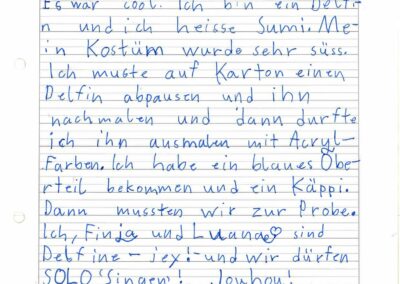 Es war cool. Ich bin ein Delfi-
n und ich heisse Sumi. Me-
in Kostüm wurde sehr süss.
Ich muste auf Karton einen
Delfin abpausen und ihn
nachmalen und dann durfte
ich ihn ausmalen mit Acryl-
Farben. Ich habe ein blaues Obe-
rteil bekommen und ein Käppi.
Dann mussten wir zur Probe.
Ich, Finja und Luana sind
Delfine - jex! - und wir dürfen
SOLO Singen! Jouhou!